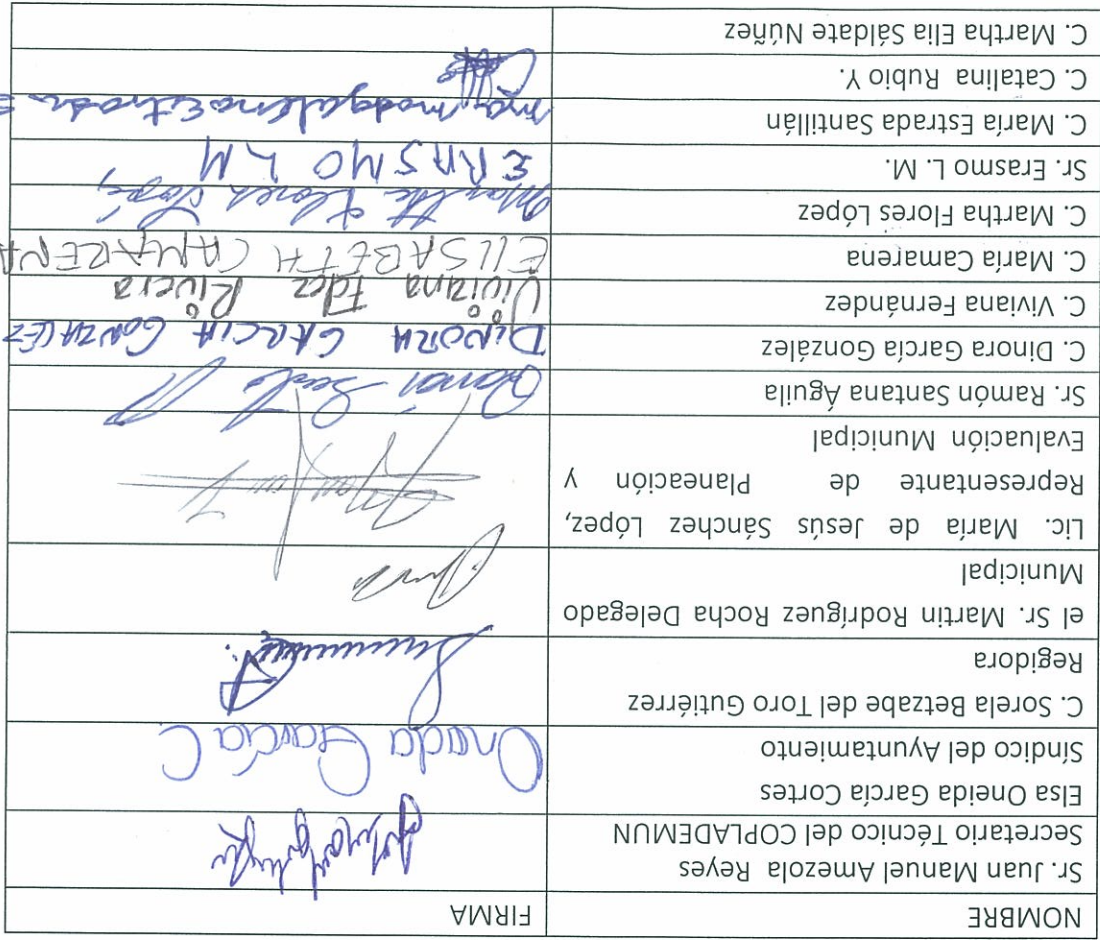 NOMBRE FIRMA
Sr. Juan Manuel Amezola Reyes
Secretario Técnico del COPLADEMUN
Elsa Oneida García Cortes
Síndico del Ayuntamiento
Oneida García C.
C. Sorela Betzabe del Toro Gutiérrez
Regidora
el Sr. Martin Rodríguez Rocha Delegado
Municipal
Lic. María de Jesús Sánchez López,
Representante de Planeación y
Evaluación Municipal
Sr. Ramón Santana Águila
C. Dinora García González DINORA GARCIA GONZALEZ
C. Viviana Fernández Viviana Fdez Rivera
C. María Camarena ELISABETH CAMARENA
C. Martha Flores López Martha Flores López
Sr. Erasmo L. M. ERASMO L M
C. María Estrada Santillán
C. Catalina Rubio Y.
C. Martha Elia Sáldate Núñez